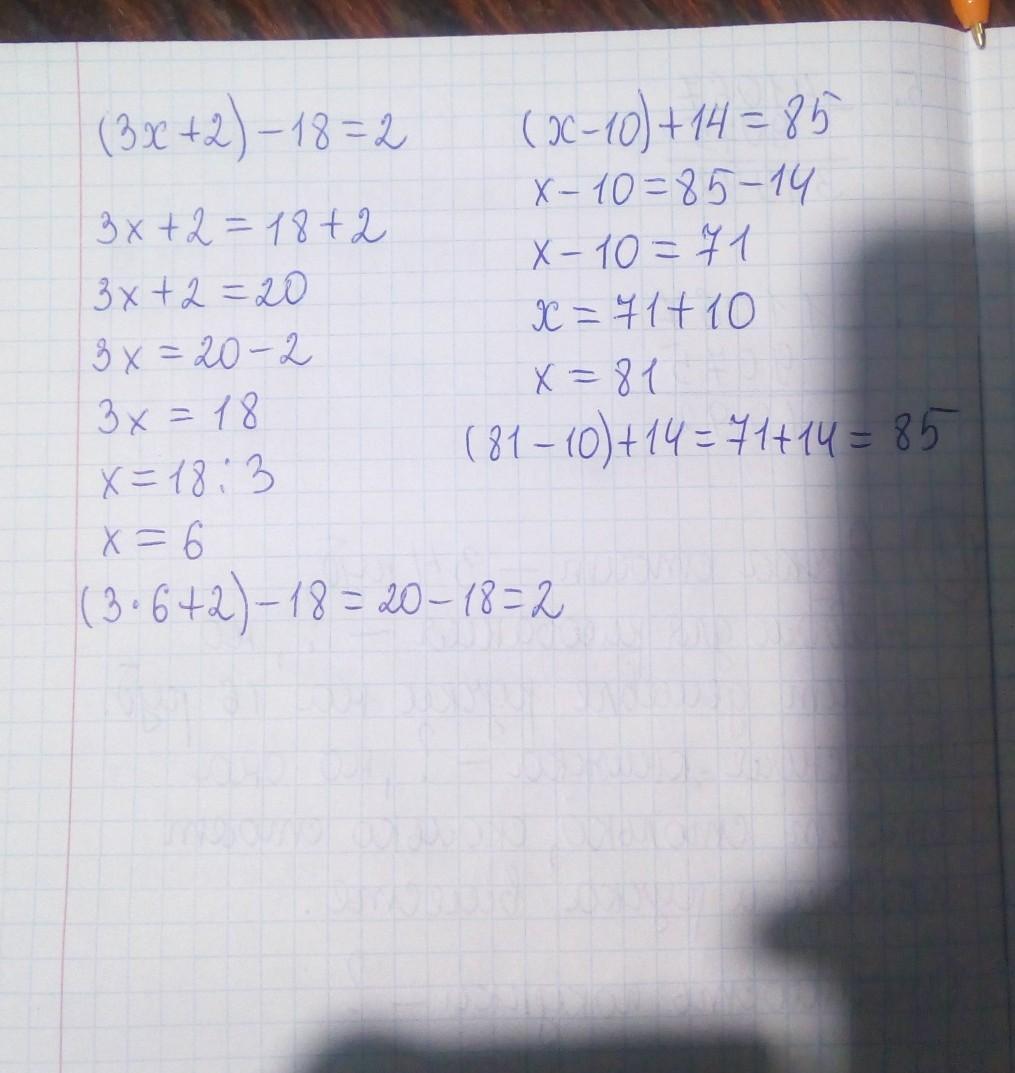 (3x+2)-18=2
3x+2=18+2
3x+2=20
3x=20-2
3x=18
x=18:3
x=6
(3·6+2)-18=20-18=2
(x-10)+14=85
x-10=85-14
x-10=71
x=71+10
x=81
(81-10)+14=71+14=85